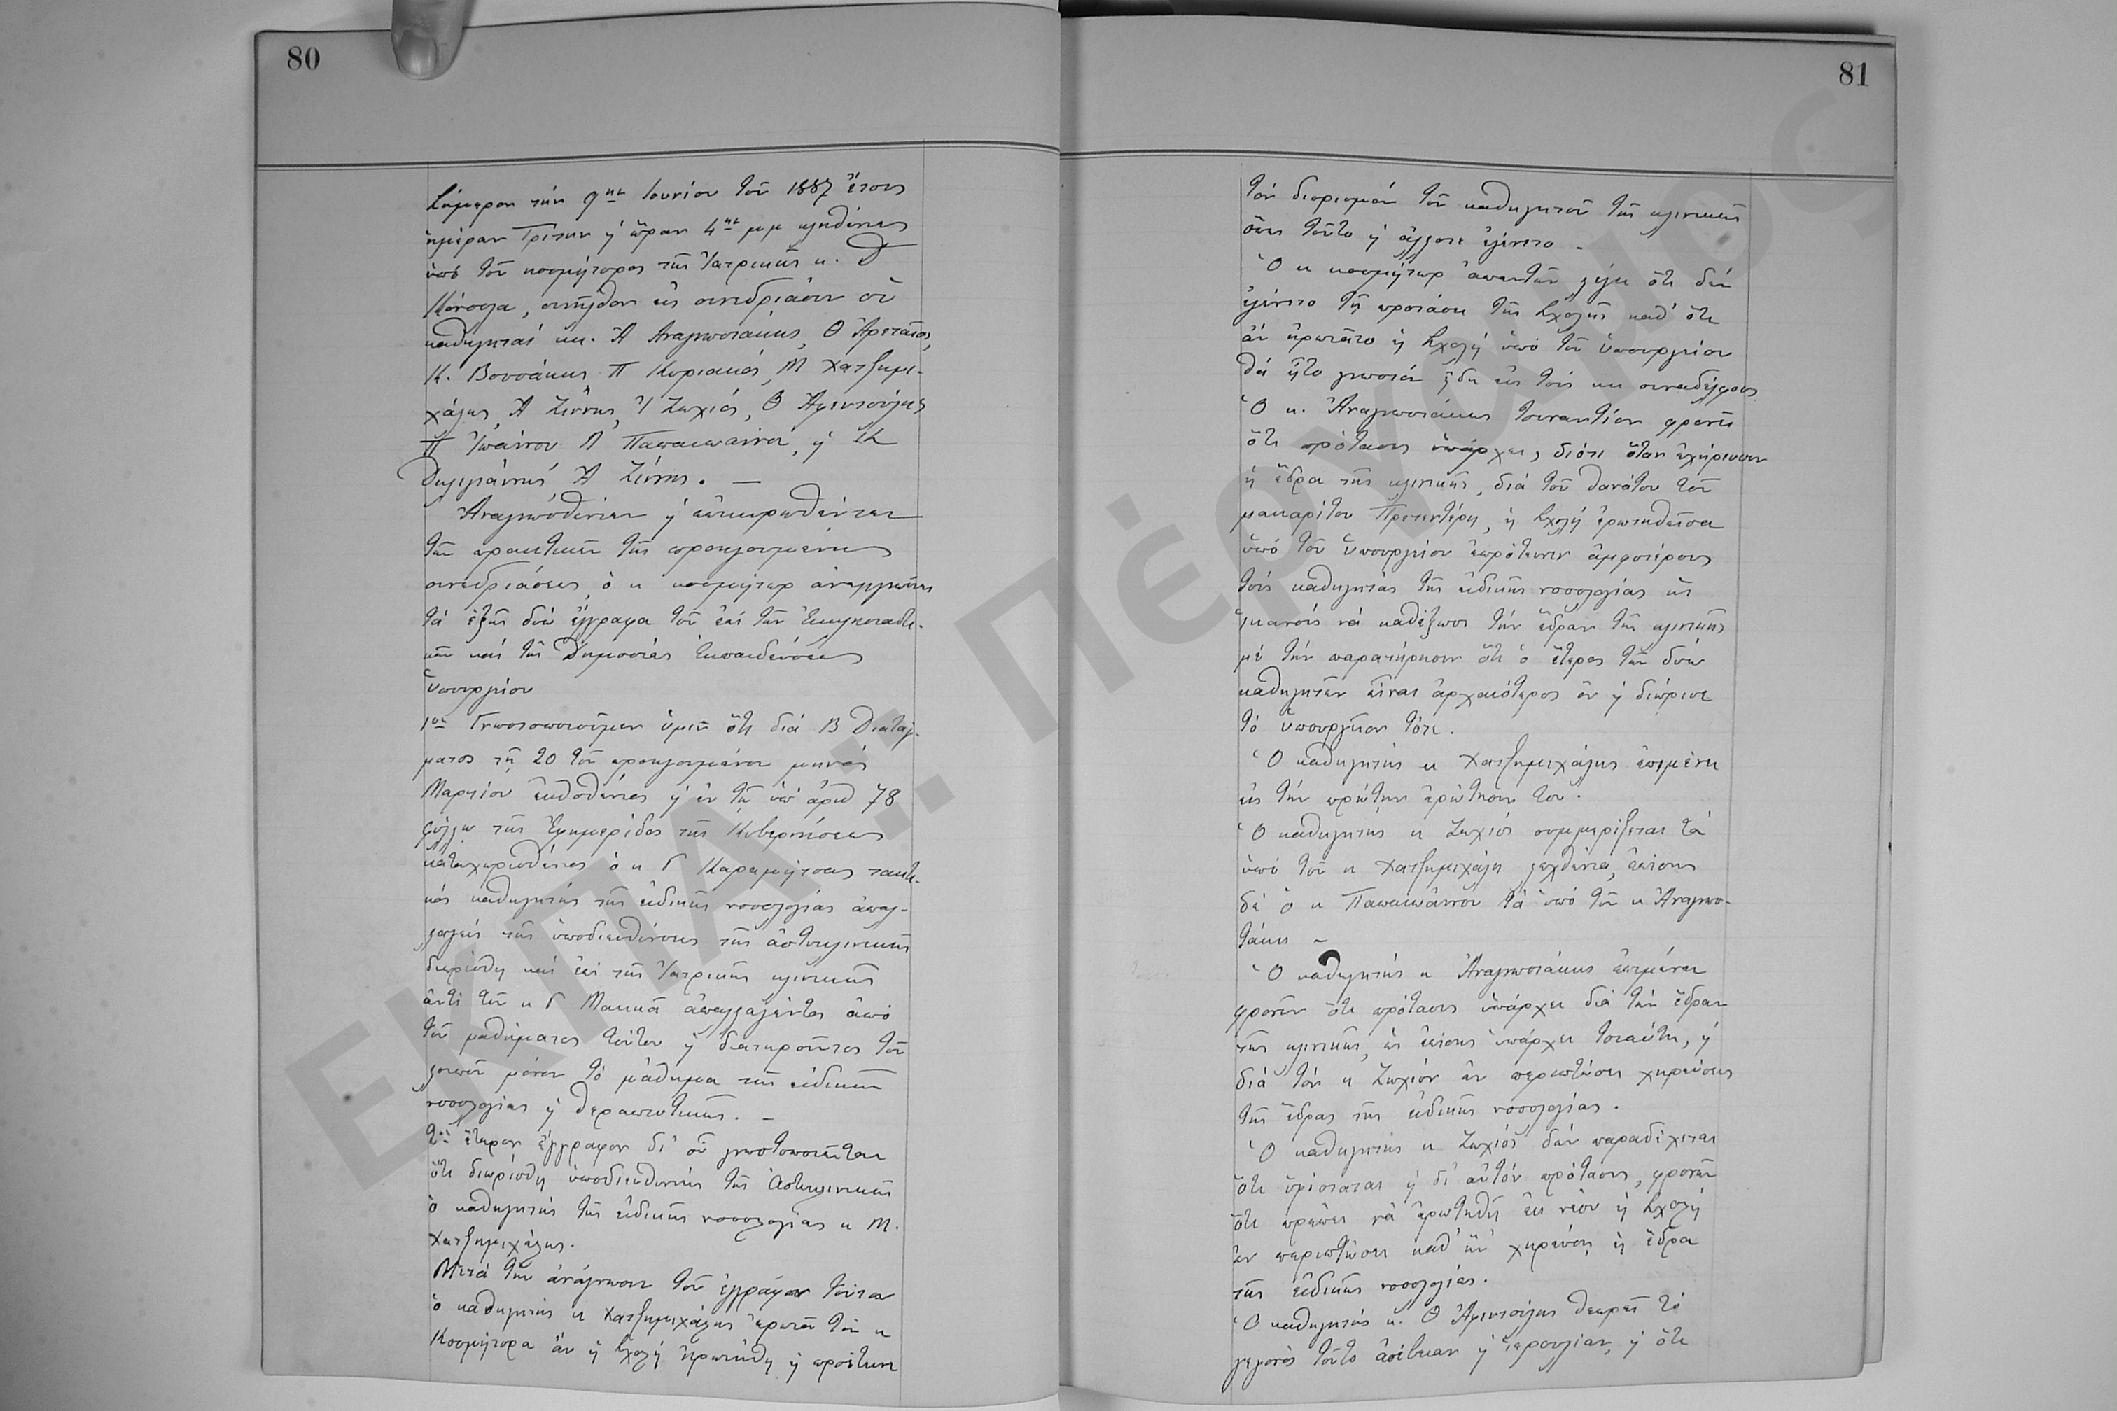 80
Σήμερον τὴν 9ην Ἰουνίου τοῦ 1887 ἔτους
ἡμέραν Τρίτην ἡ ὥραν 4ην μμ κληθέντες
ὑπὸ τοῦ κοσμήτορος τῆς Ἰατρικῆς κ. Δ
συνῆλθον εἰς συνεδρίασιν οἱ
καθηγηταί κκ. Ἀ Ἀναγνωστάκης, Θ Ἀρεταῖος,
Κ. Βουσάκης Π Κυριακός, Μ Χατζημι-
χάλης, Ἀ Ζίννης, Ἰ Ζωχιός, Θ Ἀφεντούλης
Π Ἰωάννου Λ Παπαιωάννου, ἡ
Δηλιγιάννης Ἀ Ζίννης. —
Ἀναγνωσθέντων ἡ ἐπικυρωθέντων
τῶν πρακτικῶν τῆς προηγουμένης
συνεδριάσεως, ὁ κ κοσμήτωρ ἀναγιγνώσκει
τὰ ἑξῆς δύω ἔγγραφα τοῦ ἐπὶ τῶν Ἐκκλησιαστι-
κῶν καὶ τῆς Δημοσίας Ἐκπαιδεύσεως
Ὑπουργείου
1ον Γνωστοποιοῦμεν ὑμῖν ὅτι διά Β Διατάγ-
ματος τῇ 20 τοῦ προηγουμένου μηνός
Μαρτίου ἐκδοθέντος ἡ ἐν τῷ ὑπ' ἀριθ 78
φύλλῳ τῆς Ἐφημερίδος τῆς Κυβερνήσεως
καταχωρισθέντος ὁ κ Γ Καραμήτσας τακτι-
κός καθηγητής τῆς εἰδικῆς νοσολογίας ἀπαλ-
λαγείς τῆς ὑποδιευθύνσεως τῆς ἀστυκλινικῆς
διωρίσθη καί ἐπὶ τῆς Ἰατρικῆς κλινικῆς
ἀντί τοῦ κ Γ Μακκᾶ ἀπαλλαγέντος ἀπό
τοῦ μαθήματος τούτου ἡ διατηροῦντος τοῦ
λοιποῦ μόνον τὸ μάθημα τῆς εἰδικῆς
νοσολογίας ἡ θεραπευτικῆς. —
2ον ἕτερον ἔγγραφον δι' οὗ γνωστοποιεῖται
ὅτι διωρίσθη ὑποδιευθυντής τῆς Ἀστυκλινικῆς
ὁ καθηγητής τῆς εἰδικῆς νοσολογίας κ Μ.
Χατζημιχάλης.
Μετά τὴν ἀνάγνωσιν τῶν ἐγγράφων τούτων
ὁ καθηγητής κ Χατζημιχάλης ἐρωτᾷ τὸν κ
Κοσμήτορα ἂν ἡ Σχολή ἠρωτήθη ἡ πρότεινε
81
τὸν διορισμόν τοῦ καθηγητοῦ τῆς κλινικῆς
τοῦτο ἡ ἄλλοτε ἐγένετο.
Ὁ κ κοσμήτωρ ἀπαντῶν λέγει ὅτι δέν
ἐγένετο τῇ προτάσει τῆς Σχολῆς καθ' ὅτι
ἂν ἠρωτᾶτο ἡ Σχολή ὑπό τοῦ ὑπουργείου
θά ἦτο γνωστόν ἤδη εἰς τούς κκ συναδέλφους
Ὁ κ. Ἀναγνωστάκης τοὐναντίον φρονεῖ
ὅτι πρότασις ὑπάρχει, διότι ὅταν ἐχήρευεν
ἡ ἕδρα τῆς κλινικῆς, διά τοῦ θανάτου τοῦ
μακαρίτου Πρετεντέρη, ἡ Σχολή ἐρωτηθεῖσα
ὑπό τοῦ Ὑπουργείου ἐπρότεινεν ἀμφοτέρους
τούς καθηγητάς τῆς εἰδικῆς νοσολογίας ὡς
ἱκανούς νά καθέξωσι τήν ἕδραν τῆς κλινικῆς
μέ τήν παρατήρησιν ὅτι ὁ ἕτερος τῶν δύω
καθηγητῶν εἶναι ἀρχαιότερος ὃν ἡ διώρισε
τὸ ὑπουργεῖον τότε.
Ὁ καθηγητής κ Χατζημιχάλης ἐπιμένει
εἰς τήν πρώτην ἐρώτησίν του.
Ὁ καθηγητής κ Ζωχιός συμμερίζεται τά
ὑπό τοῦ κ Χατζημιχάλη λεχθέντα, ἐπίσης
δέ ὁ κ Παπαιωάννου τά ὑπό τοῦ κ Ἀναγνω-
στάκη –
Ὁ καθηγητής κ Ἀναγνωστάκης ἐπιμένει
φρονῶν ὅτι πρότασις ὑπάρχει διά τήν ἕδραν
τῆς κλινικῆς, ὡς ἐπίσης ὑπάρχει τοιαύτη, ἡ
διά τόν κ Ζωχιόν ἐν περιπτώσει χηρεύσεως
τῆς ἕδρας τῆς εἰδικῆς νοσολογίας.
Ὁ καθηγητής κ Ζωχιός δέν παραδέχεται
ὅτι ὑφίσταται ἡ δι' αὐτόν πρότασις, φρονῶν
ὅτι πρέπει νά ἐρωτηθῇ ἐκ νέου ἡ Σχολή
ἐν περιπτώσει καθ' ἥν χηρεύσῃ ἡ ἕδρα
τῆς εἰδικῆς νοσολογίας.
Ὁ καθηγητής κ. Θ Ἀφεντούλης θεωρεῖ τὸ
γεγονός τοῦτο ἀσέβειαν ἡ ἱεροσυλίαν, ἡ ὅτι
ΕΚΠΑ :: Πέργαμος